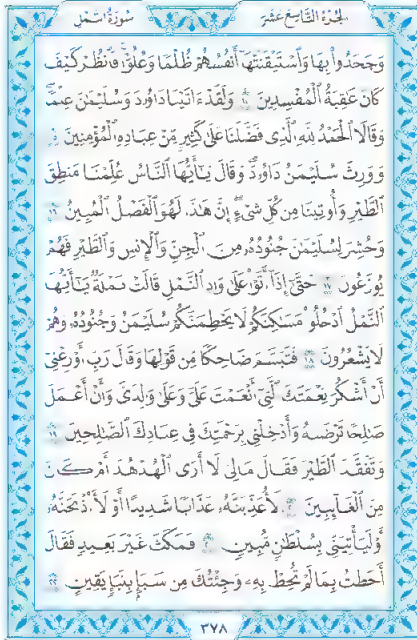 الجزء التاسع عشر
سورة النمل
وَجَحَدُوا۟ بِهَا وَٱسْتَيْقَنَتْهَآ أَنفُسُهُمْ ظُلْمًا وَعُلُوًّا ۚ فَٱنظُرْ كَيْفَ
كَانَ عَٰقِبَةُ ٱلْمُفْسِدِينَ ١٤ وَلَقَدْ ءَاتَيْنَا دَاوُۥدَ وَسُلَيْمَٰنَ عِلْمًا ۖ
وَقَالَا ٱلْحَمْدُ لِلَّهِ ٱلَّذِى فَضَّلَنَا عَلَىٰ كَثِيرٍ مِّنْ عِبَادِهِ ٱلْمُؤْمِنِينَ ١٥
وَوَرِثَ سُلَيْمَٰنُ دَاوُۥدَ ۖ وَقَالَ يَٰٓأَيُّهَا ٱلنَّاسُ عُلِّمْنَا مَنطِقَ
ٱلطَّيْرِ وَأُوتِينَا مِن كُلِّ شَىْءٍ ۖ إِنَّ هَٰذَا لَهُوَ ٱلْفَضْلُ ٱلْمُبِينُ ١٦
وَحُشِرَ لِسُلَيْمَٰنَ جُنُودُهُۥ مِنَ ٱلْجِنِّ وَٱلْإِنسِ وَٱلطَّيْرِ فَهُمْ
يُوزَعُونَ ١٧ حَتَّىٰٓ إِذَآ أَتَوْا۟ عَلَىٰ وَادِ ٱلنَّمْلِ قَالَتْ نَمْلَةٌ يَٰٓأَيُّهَا
ٱلنَّمْلُ ٱدْخُلُوا۟ مَسَٰكِنَكُمْ لَا يَحْطِمَنَّكُمْ سُلَيْمَٰنُ وَجُنُودُهُۥ وَهُمْ
لَا يَشْعُرُونَ ١٨ فَتَبَسَّمَ ضَاحِكًا مِّن قَوْلِهَا وَقَالَ رَبِّ أَوْزِعْنِىٓ
أَنْ أَشْكُرَ نِعْمَتَكَ ٱلَّتِىٓ أَنْعَمْتَ عَلَىَّ وَعَلَىٰ وَٰلِدَىَّ وَأَنْ أَعْمَلَ
صَٰلِحًا تَرْضَىٰهُ وَأَدْخِلْنِى بِرَحْمَتِكَ فِى عِبَادِكَ ٱلصَّٰلِحِينَ ١٩
وَتَفَقَّدَ ٱلطَّيْرَ فَقَالَ مَا لِىَ لَآ أَرَى ٱلْهُدْهُدَ أَمْ كَانَ
مِنَ ٱلْغَآئِبِينَ ٢٠ لَأُعَذِّبَنَّهُۥ عَذَابًا شَدِيدًا أَوْ لَأَا۟ذْبَحَنَّهُۥٓ
أَوْ لَيَأْتِيَنِّى بِسُلْطَٰنٍ مُّبِينٍ ٢١ فَمَكَثَ غَيْرَ بَعِيدٍ فَقَالَ
أَحَطتُ بِمَا لَمْ تُحِطْ بِهِۦ وَجِئْتُكَ مِن سَبَإٍۭ بِنَبَإٍ يَقِينٍ ٢٢
٣٧٨